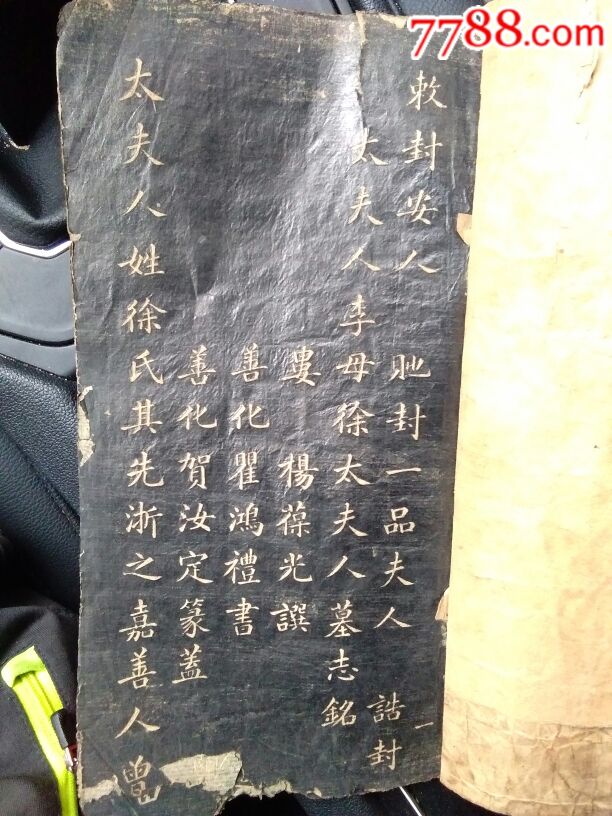 7788.com
敕封安人 貤封一品夫人 誥封
太夫人李母徐太夫人墓志銘
婁 楊葆光譔
善化瞿鴻禮書
善化賀汝定篆蓋
太夫人姓徐氏其先浙之嘉善人曾
一